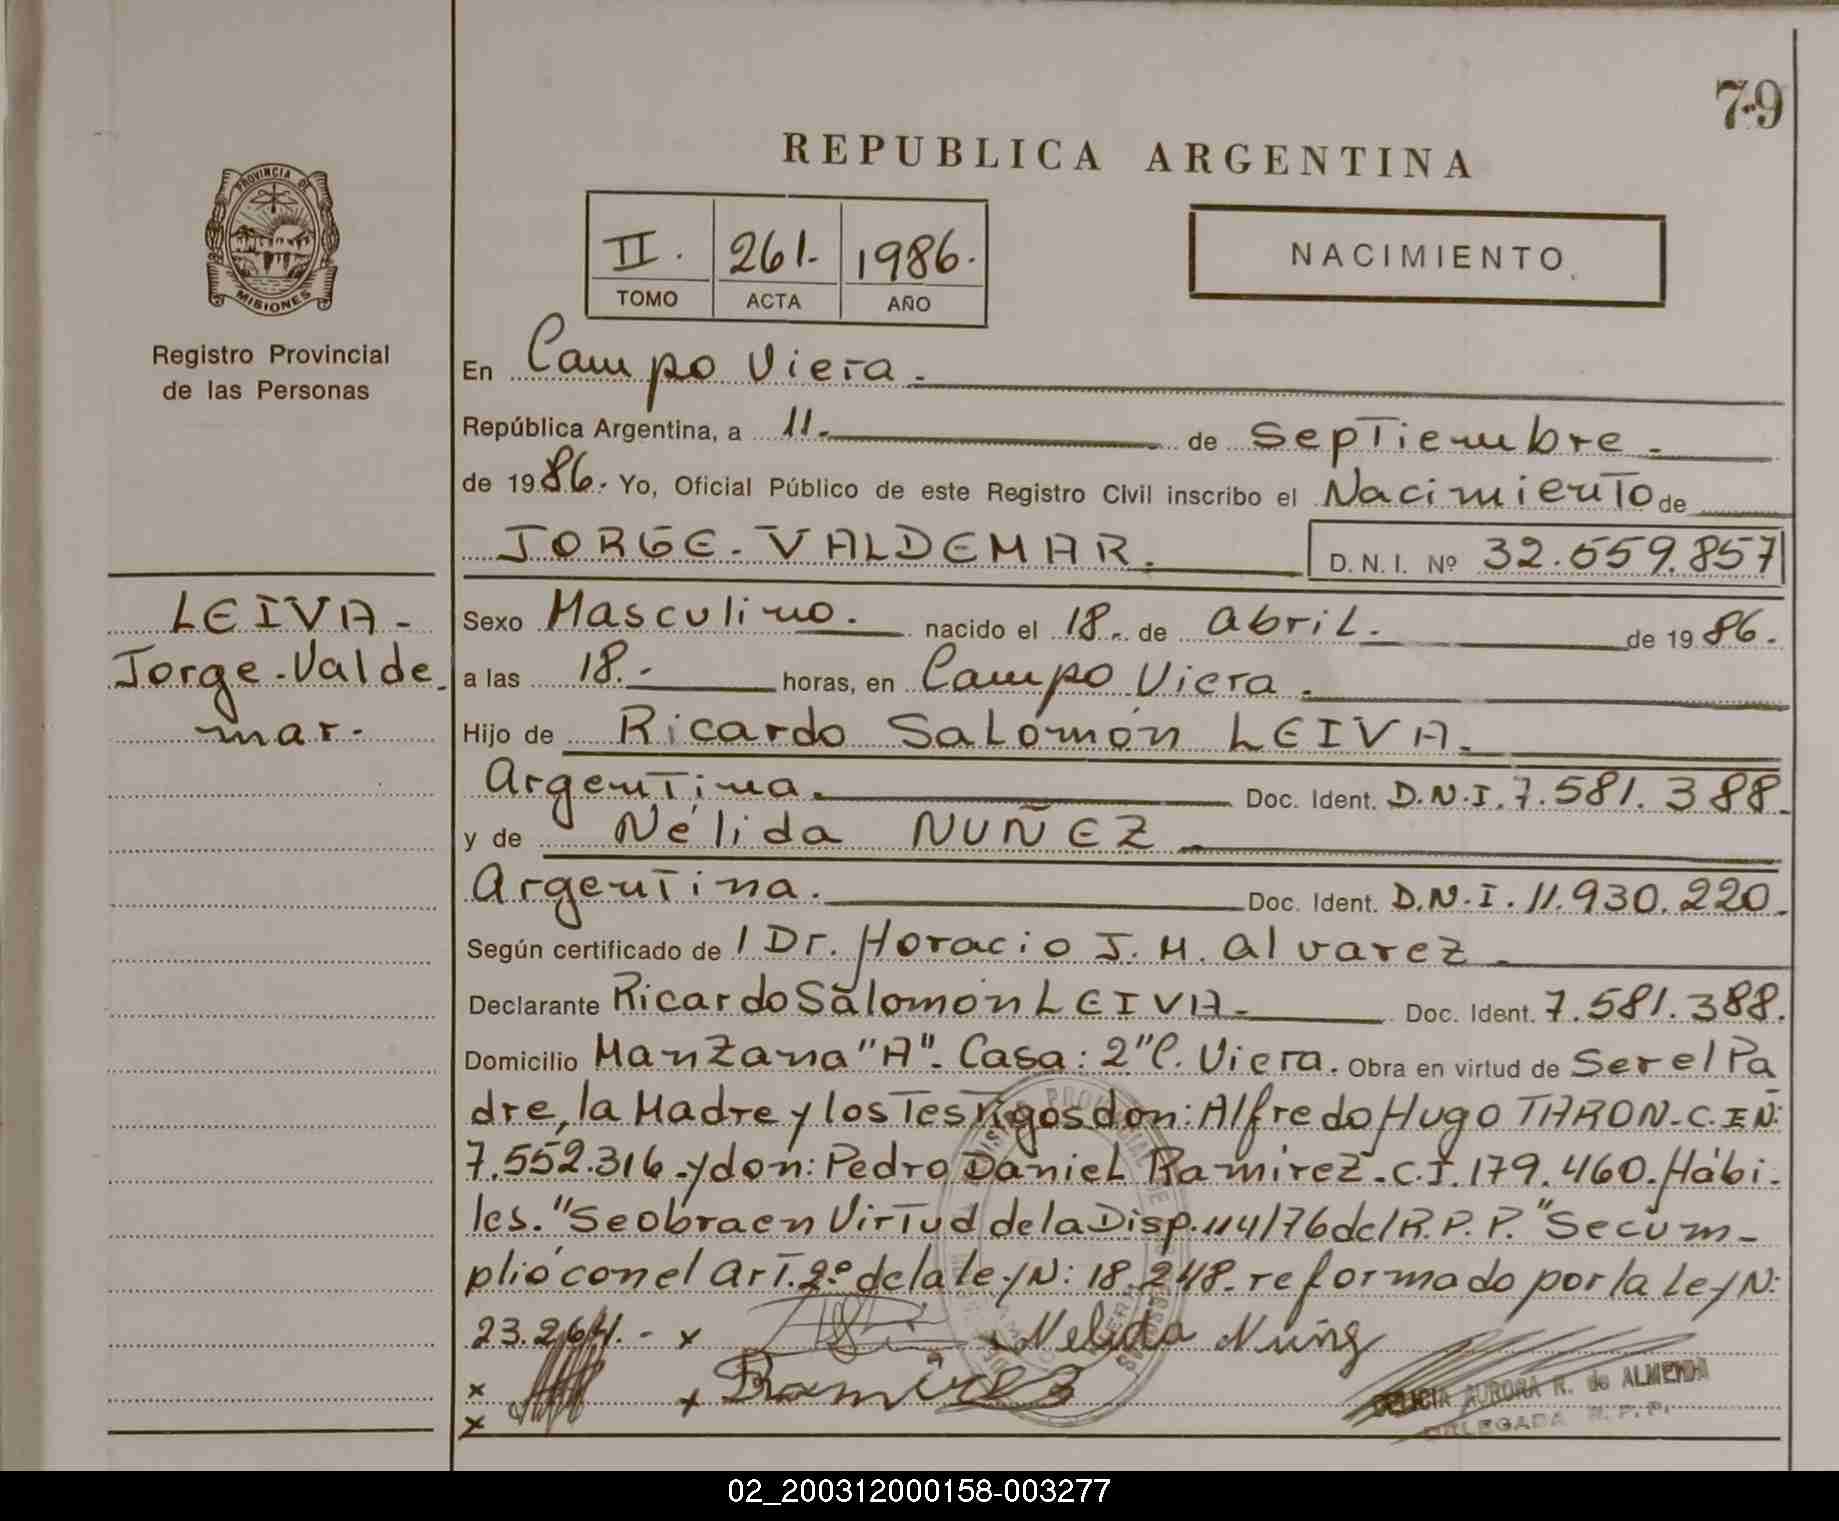 79
REPUBLICA ARGENTINA
PROVINCIA DE
MISIONES
Registro Provincial
de las Personas
II. 261. 1986.
TOMO ACTA AÑO
NACIMIENTO
En Campo Viera.
República Argentina, a 11. de Septiembre.
de 1986. Yo, Oficial Público de este Registro Civil inscribo el Nacimiento de
JORGE-VALDEMAR. D. N. I. Nº 32.559.857
LEIVA-
Jorge-Valde
mar.
Sexo Masculino. nacido el 18. de abril. de 1986.
a las 18.- horas, en Campo Viera.
Hijo de Ricardo Salomón LEIVA.
Argentina. Doc. Ident. D.N.I. 7.581.388.
y de Nélida NUÑEZ
Argentina. Doc. Ident. D.N.I. 11.930.220.
Según certificado de / Dr. Horacio J. M. alvarez
Declarante Ricardo Salomón LEIVA. Doc. Ident. 7.581.388.
Domicilio Manzana "A". Casa: 2" C. Viera. Obra en virtud de Ser el Pa
dre, la Madre y los Testigos don: Alfredo Hugo THRON-C.I.Nº:
7.552.316.-y don: Pedro Daniel Ramirez.-C.I.179.460.Hábi-
les. "Se obra en Virtud de la Disp.114/76 del R.P.P." Se cum-
plió con el art.2º de la ley N: 18.248. reformado por la Ley N:
23.264.- x x Nelida Nuñez
x x Ramirez
x
DELICIA AURORA R. de ALMEIDA
DELEGADA R.P.P.
02_200312000158-003277